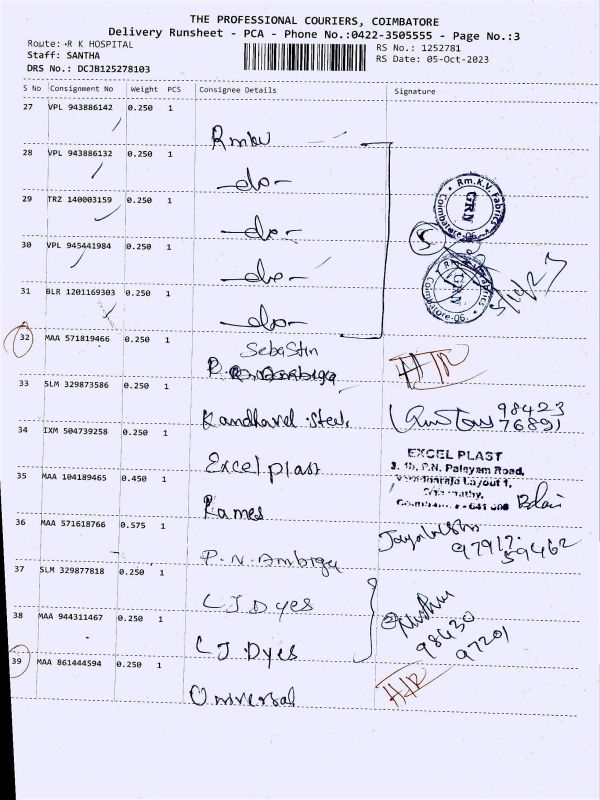 THE PROFESSIONAL COURIERS, COIMBATORE
Delivery Runsheet - PCA - Phone No.:0422-3505555 - Page No.:3
Route: R K HOSPITAL
RS No.: 1252781
Staff: SANTHA
RS Date: 05-Oct-2023
DRS No.: DCJB125278103
S No Consignment No Weight PCS Consignee Details Signature
27 VPL 943886142 0.250 1
Rmkv
28 VPL 943886132 0.250 1
-do-
29 TRZ 140003159 0.250 1
-do-
30 VPL 945441984 0.250 1
-do-
31 BLR 1201169303 0.250 1
-do-
Rm.K.V. Fabrics
GRN
Coimbatore-06.
5
GRN
Fabrics
Coimbatore-06.
32 MAA 571819466 0.250 1
Sebastin
33 SLM 329873586 0.250 1
Kandhavel Steel
98423
76891
34 IXM 504739258 0.250 1
Excel plast
EXCEL PLAST
P.N. Palayam Road,
Layout 1,
35 MAA 104189465 0.450 1
Rames
36 MAA 571618766 0.575 1
P. N. Ambiga
97917
59462
37 SLM 329877818 0.250 1
L J Dyes
38 MAA 944311467 0.250 1
L J. Dyes
98430
97201
39 MAA 861444594 0.250 1
Universal